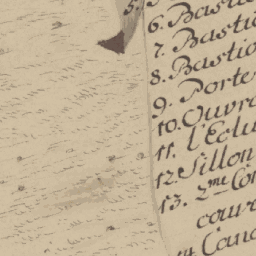 5.
6. Bastio
7. Bastio
8. Bastio
9. Porte
10. Ouvra
11. l'Eclu
12. Sillon
13. 2me Con
couv
Cana